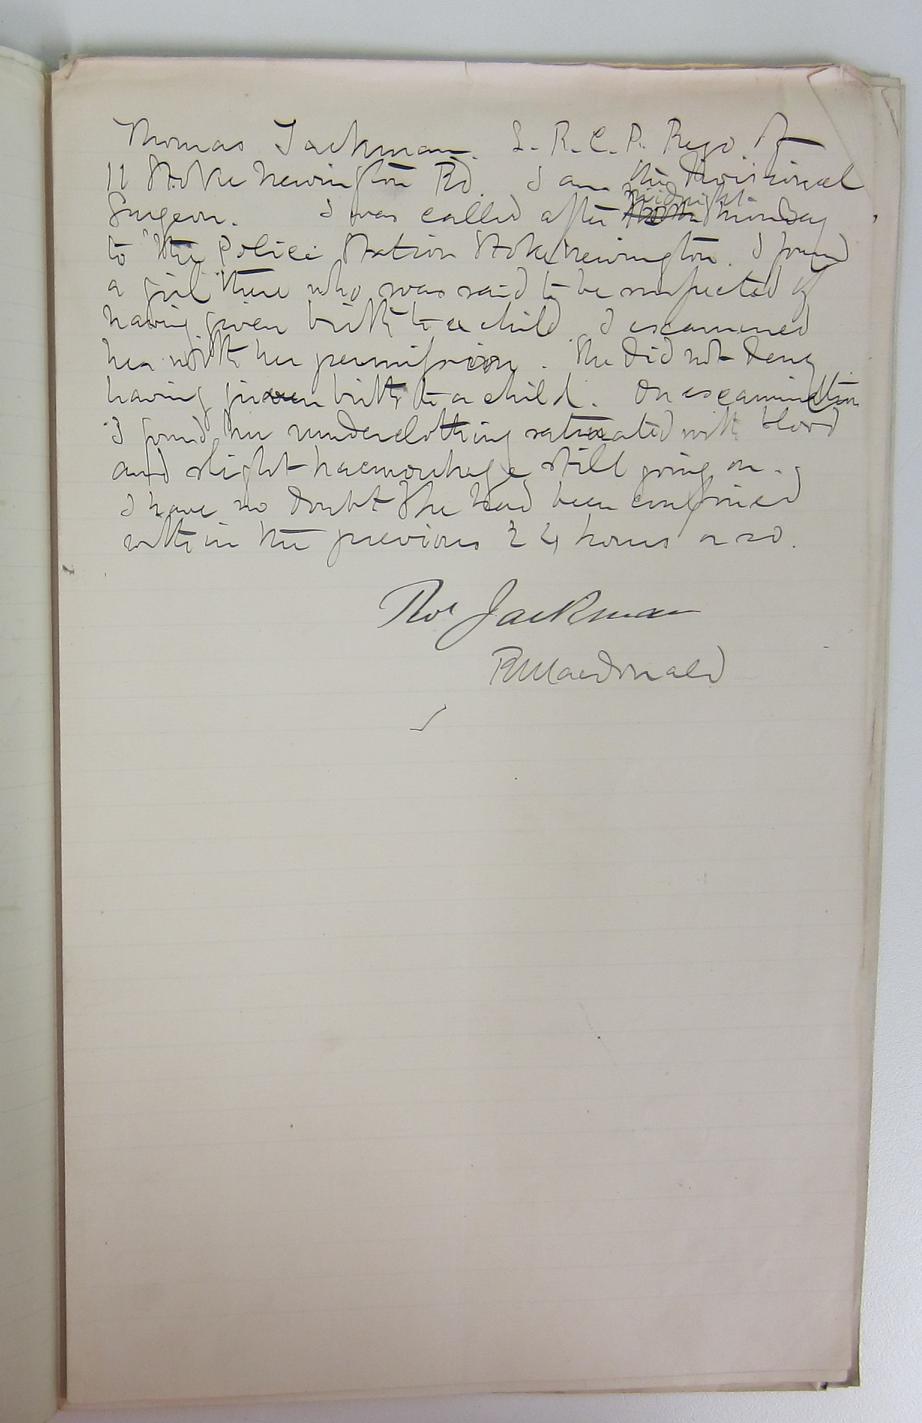 Thomas Jackman. L.R.C.P. Regd of
11 Stoke Newington Rd. I am the Divisional
Surgeon. I was called after midnight Monday
to the Police Station Stoke Newington. I found
a girl there who was said to be suspected of
having given birth to a child. I examined
her with her permission. She did not deny
having given birth to a child. On examination
I found her underclothing saturated with blood
and slight haemorrhage still going on.
I have no doubt she had been confined
within the previous 24 hours or so.
Thos Jackman
R Macdonald